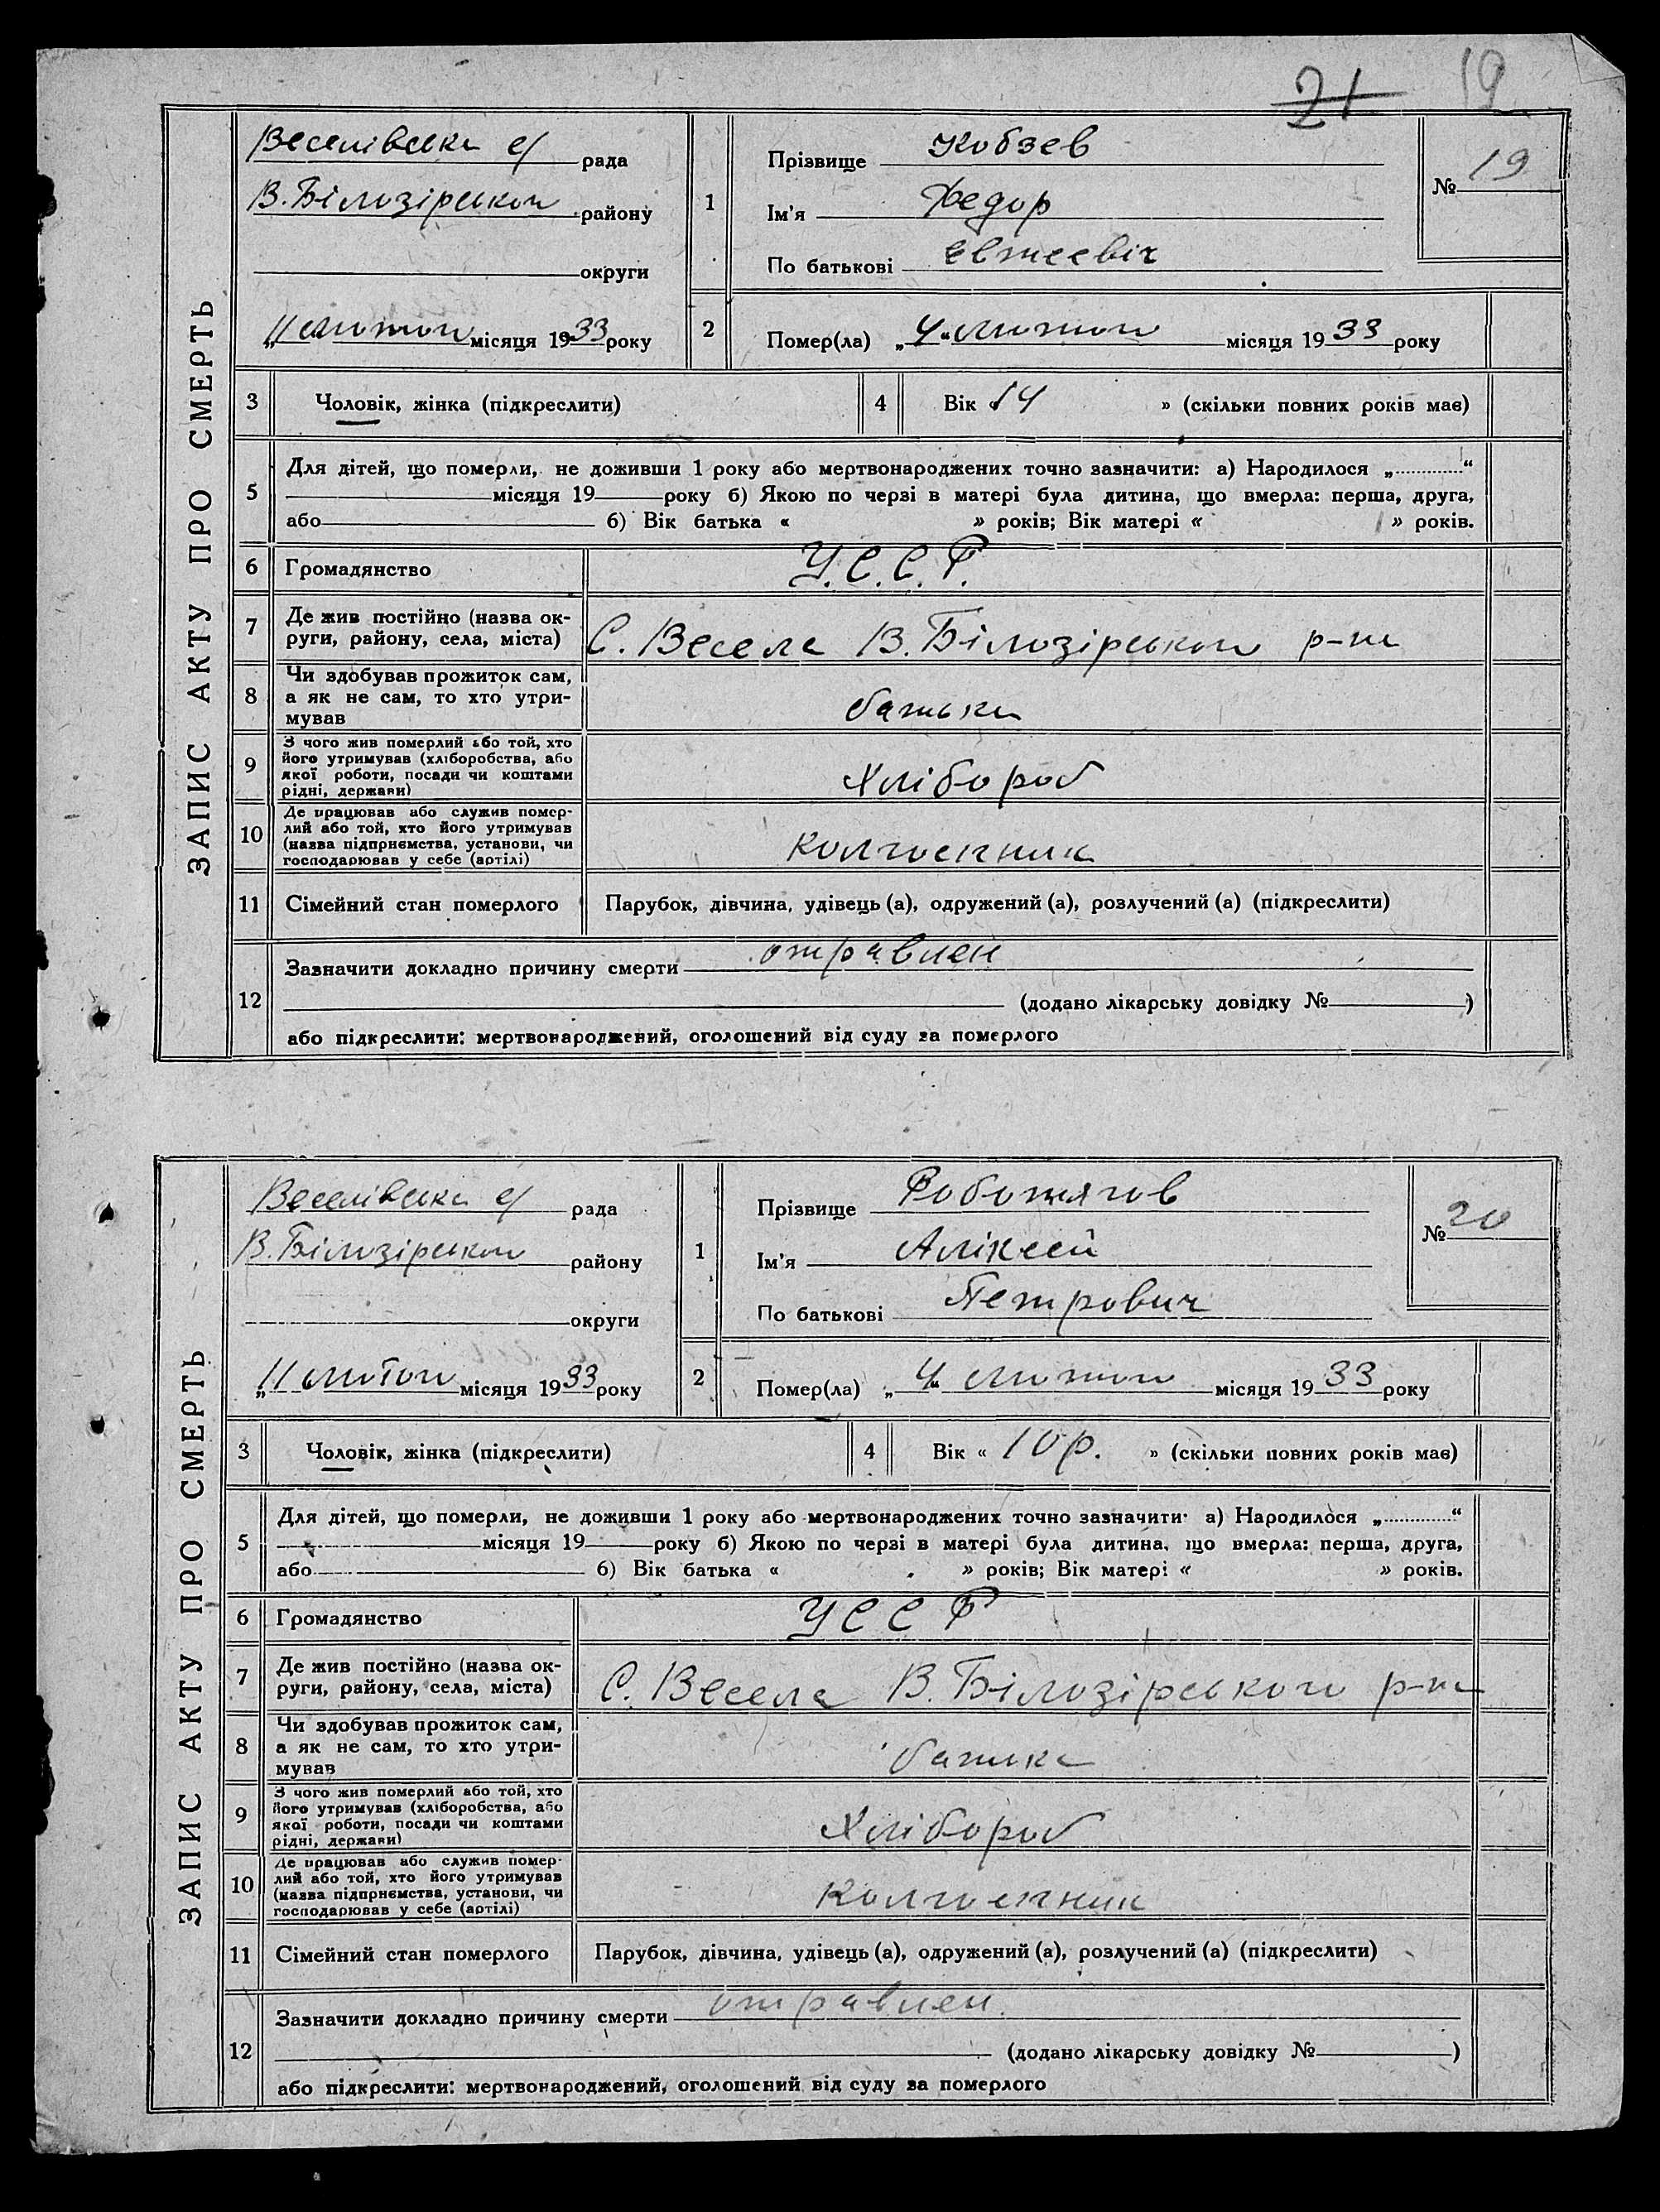 21 19
ЗАПИС АКТУ ПРО СМЕРТЬ
Веселівська с/ рада
В. Білозірського району
округи
„11 лютого місяця 1933 року
1
Прізвище Кобзев
Ім'я Федор
По батькові
№ 19
2
Помер(ла) „4“ лютого місяця 1933 року
3 Чоловік, жінка (підкреслити)
4 Вік « 14 » (скільки повних років має)
5 Для дітей, що померли, не доживши 1 року або мертвонароджених точно зазначити: а) Народилося „ “
місяця 19 року б) Якою по черзі в матері була дитина, що вмерла: перша, друга,
або б) Вік батька « » років; Вік матері « » років.
6 Громадянство У.С.С.Р.
7 Де жив постійно (назва ок-
руги, району, села, міста) С. Весела В. Білозірського р-на
8 Чи здобував прожиток сам,
а як не сам, то хто утри-
мував батька
9 З чого жив померлий або той, хто
його утримував (хліборобства, або
якої роботи, посади чи коштами
рідні, держави) Хлібороб
10 Де працював або служив помер-
лий або той, хто його утримував
(назва підприємства, установи, чи
господарював у себе (артілі) Колгоспник
11 Сімейний стан померлого Парубок, дівчина, удівець (а), одружений (а), розлучений (а) (підкреслити)
12 Зазначити докладно причину смерти отравлен
(додано лікарську довідку № )
або підкреслити: мертвонароджений, оголошений від суду за померлого
ЗАПИС АКТУ ПРО СМЕРТЬ
Веселівська с/ рада
В. Білозірського району
округи
„11 лютого місяця 1933 року
1
Прізвище Роботягов
Ім'я Аліксей
По батькові Петрович
№ 20
2
Помер(ла) „4“ лютого місяця 1933 року
3 Чоловік, жінка (підкреслити)
4 Вік « 10 р. » (скільки повних років має)
5 Для дітей, що померли, не доживши 1 року або мертвонароджених точно зазначити: а) Народилося „ “
місяця 19 року б) Якою по черзі в матері була дитина, що вмерла: перша, друга,
або б) Вік батька « » років; Вік матері « » років.
6 Громадянство УССР
7 Де жив постійно (назва ок-
руги, району, села, міста) С. Весела В. Білозірського р-на
8 Чи здобував прожиток сам,
а як не сам, то хто утри-
мував батька
9 З чого жив померлий або той, хто
його утримував (хліборобства, або
якої роботи, посади чи коштами
рідні, держави) Хлібороб
10 Де працював або служив помер-
лий або той, хто його утримував
(назва підприємства, установи, чи
господарював у себе (артілі) Колгоспник
11 Сімейний стан померлого Парубок, дівчина, удівець (а), одружений (а), розлучений (а) (підкреслити)
12 Зазначити докладно причину смерти отравлен.
(додано лікарську довідку № )
або підкреслити: мертвонароджений, оголошений від суду за померлого